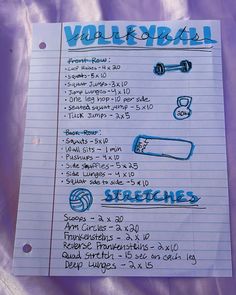 VOLLEYBALL
workouts
Front Row:
• Calf Raises - 4 x 20
• Squats - 5 x 10
• Squat Jumps - 3 x 10
• Jump Lunges - 4 x 10
• One leg hop - 10 per side
• Seated squat jump - 5 x 10
• Tuck Jumps - 2 x 5
Back Row:
• Squats - 5 x 10
• Wall Sits - 1 min
• Pushups - 4 x 10
• Side shuffles - 5 x 25
• Side Lunges - 4 x 10
• Squat side to side - 5 x 10
STRETCHES
Scoops - 2 x 20
Arm Circles - 2 x 20
Frankensteins - 2 x 10
Reverse Frankensteins - 2 x 10
Quad Stretch - 15 sec on each leg
Deep Lunges - 2 x 15